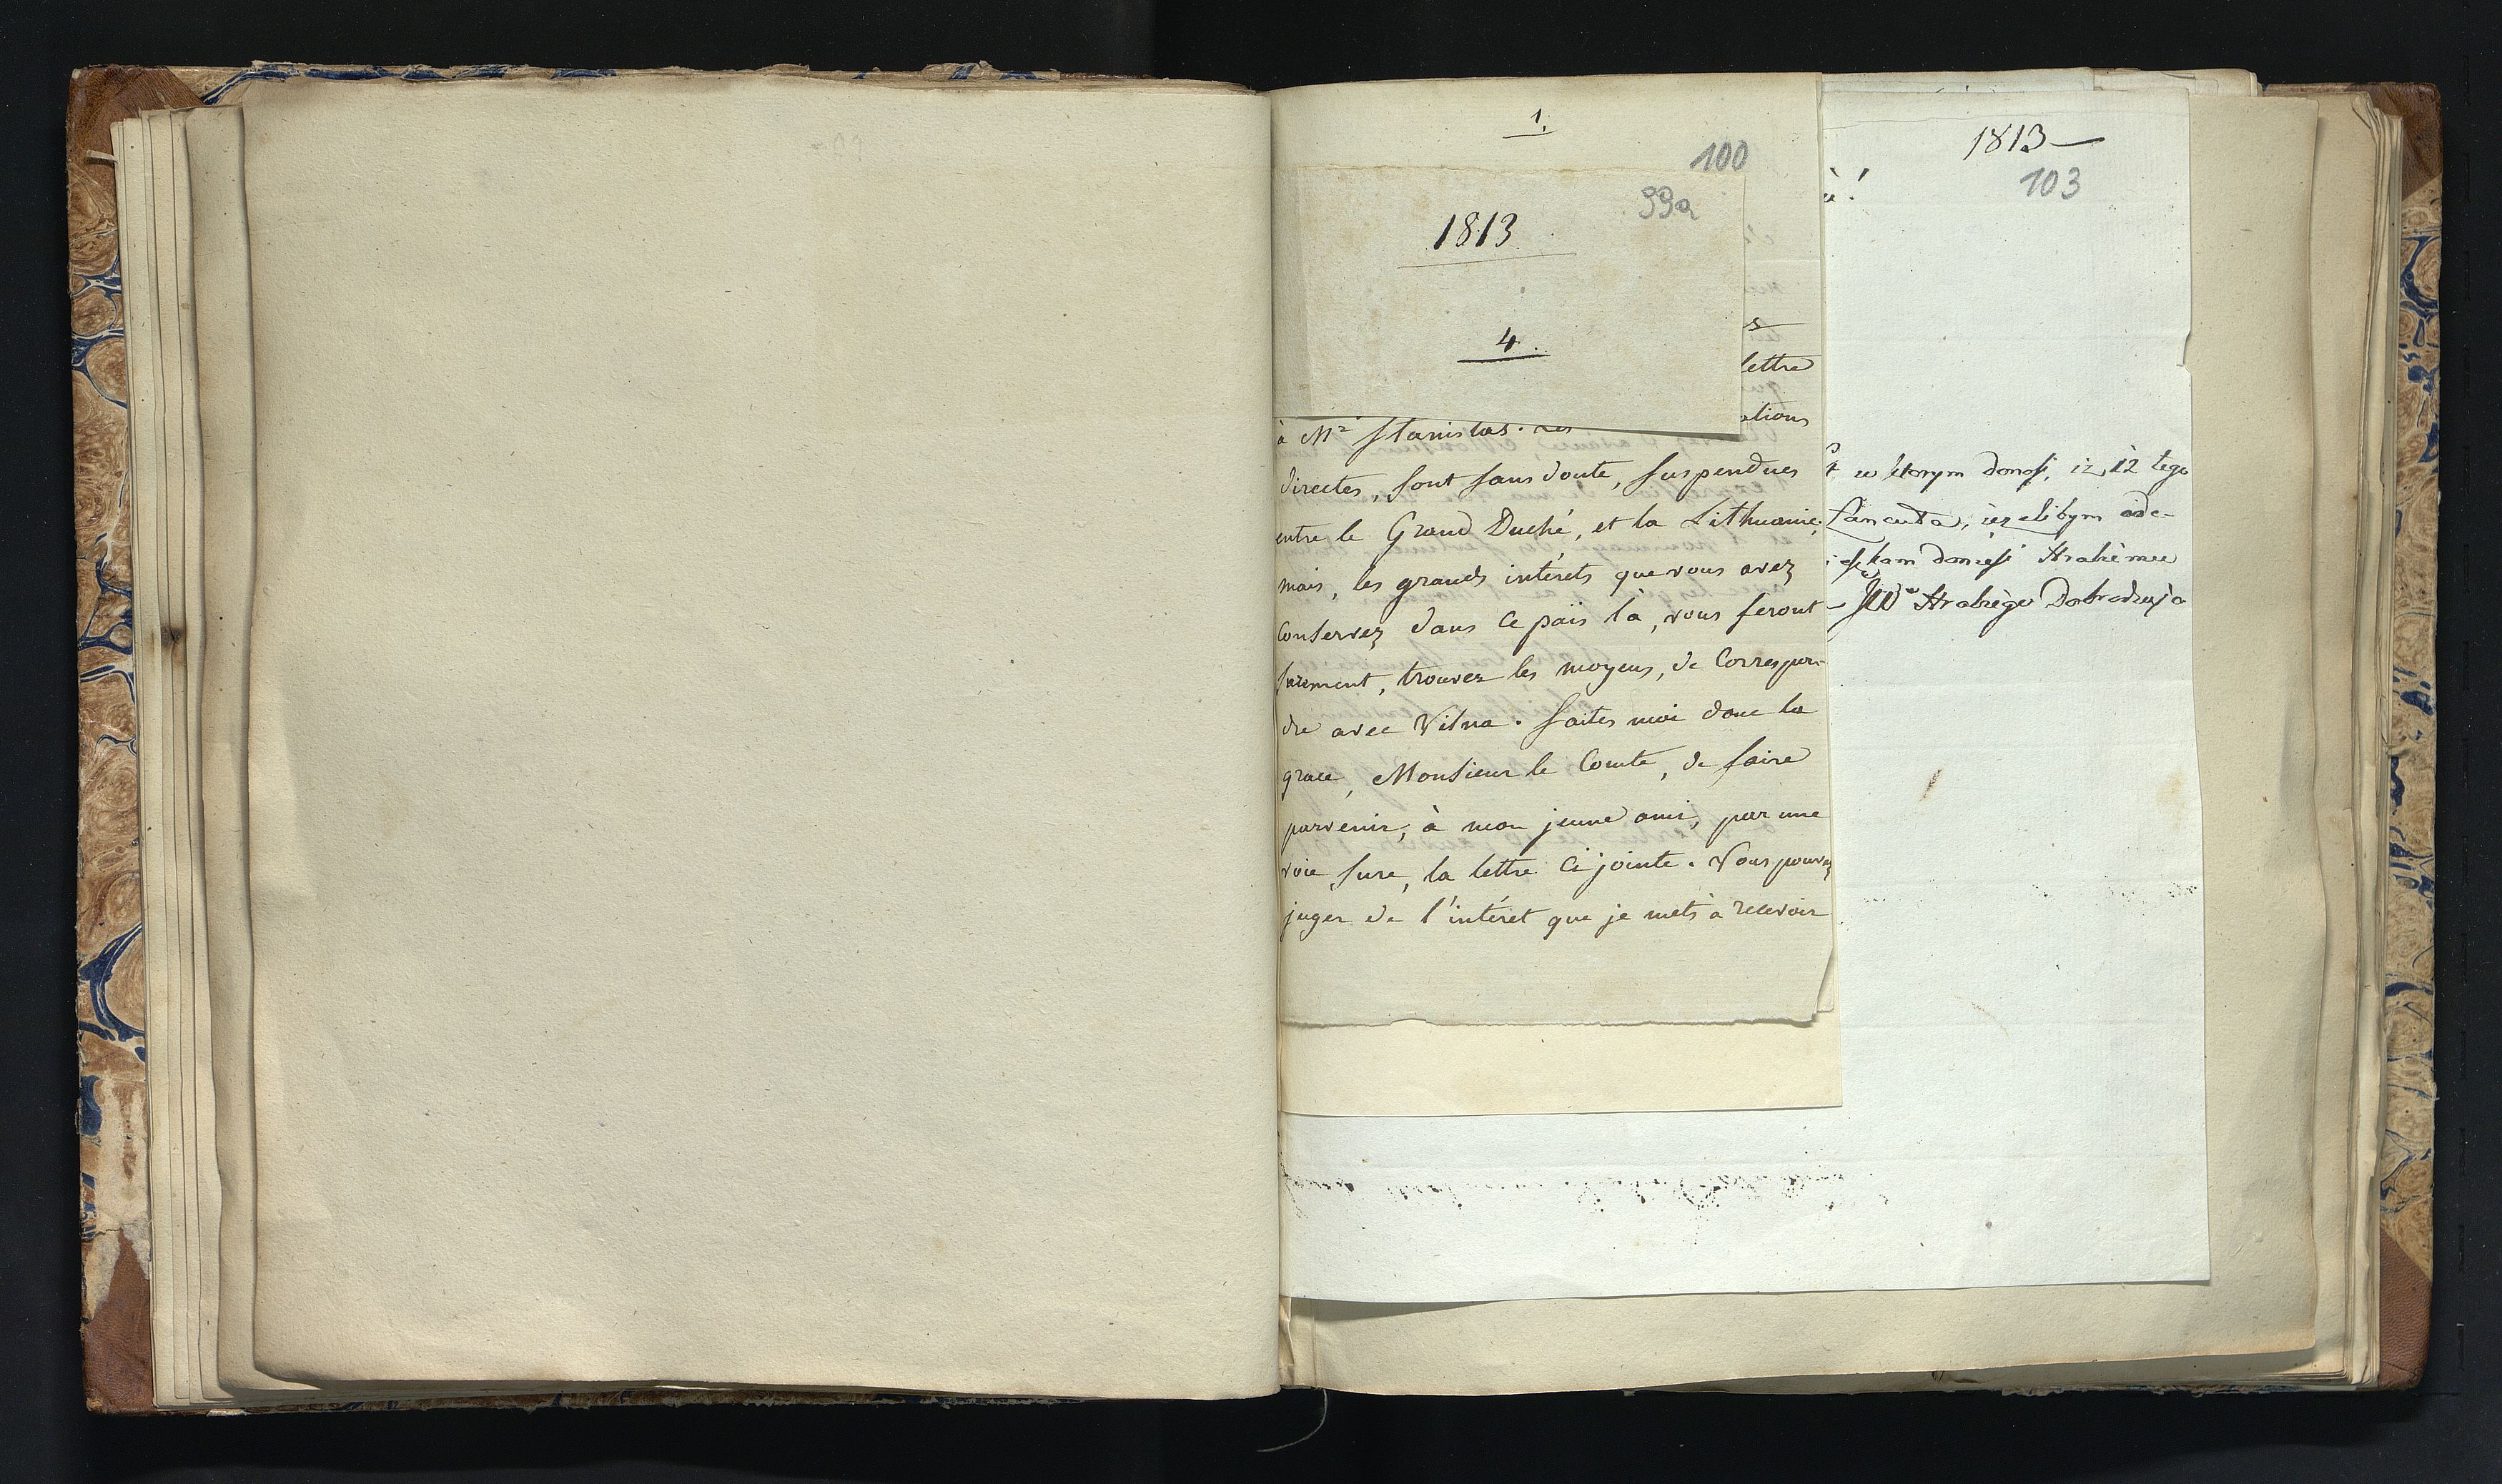 1.
100
99a
1813
4.
lettre
ations
à Mr Stanislas.
directes, sont sans doute, suspendues
entre le Grand Duché, et la Lithuanie;
mais, les grands intérets que vous avez
Conservez dans ce païs là, vous feront
surement, trouver les moyens, de Correspon-
dre avec Vilna. Faites moi donc la
grace, Monsieur le Comte, de faire
parvenir, à mon jeune ami, par une
voie sure, la lettre Ci jointe. Vous pouvez
juger de l'intéret que je mets à recevoir
1813
103
w ktorym donosi, iz 12 tego
Lancuta, iezelibym ode-
kam doniesć Hrabiemu
JWo Hrabiego Dobrodzieja